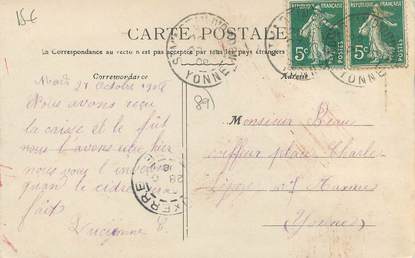 15€
CARTE POSTALE
La Correspondance au recto n'est pas acceptée par tous les pays étrangers
Correspondance
Adresse
RÉPUBLIQUE FRANÇAISE
5c
POSTES
RÉPUBLIQUE FRANÇAISE
5c
POSTES
YONNE
89
Mardi 27 Octobre 1908
Nous avons reçu
la caisse et le fût
nous l'avons hier
nous vous l'
quan le cidre sera
fait
Monsieur Beau
coiffeur place Charles
Lepère
Auxerre
(Yonne)
AUXERRE
28